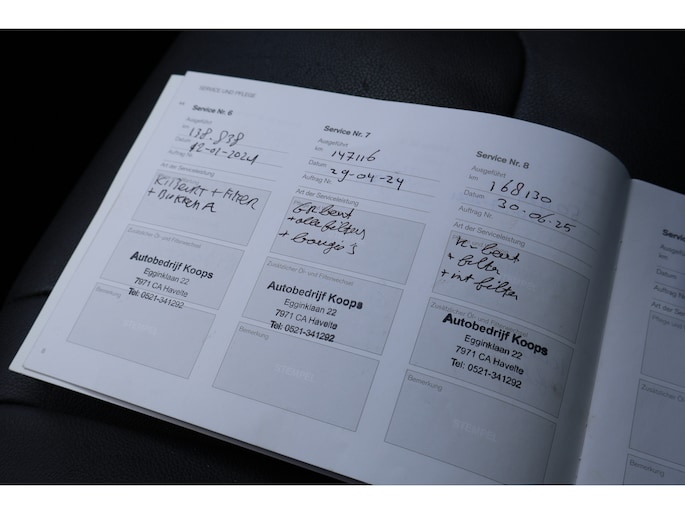 SERVICE UND PFLEGE
Service Nr. 6
Ausgeführt
km 138.838
Datum 12-01-2021
Auftrag Nr.
Art der Serviceleistung
+ Filter
+ Bukken A
Zusätzlicher Öl- und Filterwechsel
Autobedrijf Koops
Egginklaan 22
7971 CA Havelte
Tel: 0521-341292
Bemerkung
8
Service Nr. 7
Ausgeführt
km 147116
Datum 29-04-24
Auftrag Nr.
Art der Serviceleistung
GR beurt
+ oliefilter
+ bougie's
Zusätzlicher Öl- und Filterwechsel
Autobedrijf Koops
Egginklaan 22
7971 CA Havelte
Tel: 0521-341292
Bemerkung
STEMPEL
Service Nr. 8
Ausgeführt
km 168130
Datum 30.06.25
Auftrag Nr.
Art der Serviceleistung
K-beurt
+ filter
+ int filter
Zusätzlicher Öl- und Filterwechsel
Autobedrijf Koops
Egginklaan 22
7971 CA Havelte
Tel: 0521-341292
Bemerkung
STEMPEL
Ausgeführt
km
Datum
Auftrag Nr.
Art der Serv
Pflege und
Zusätzlicher
Bemerkung